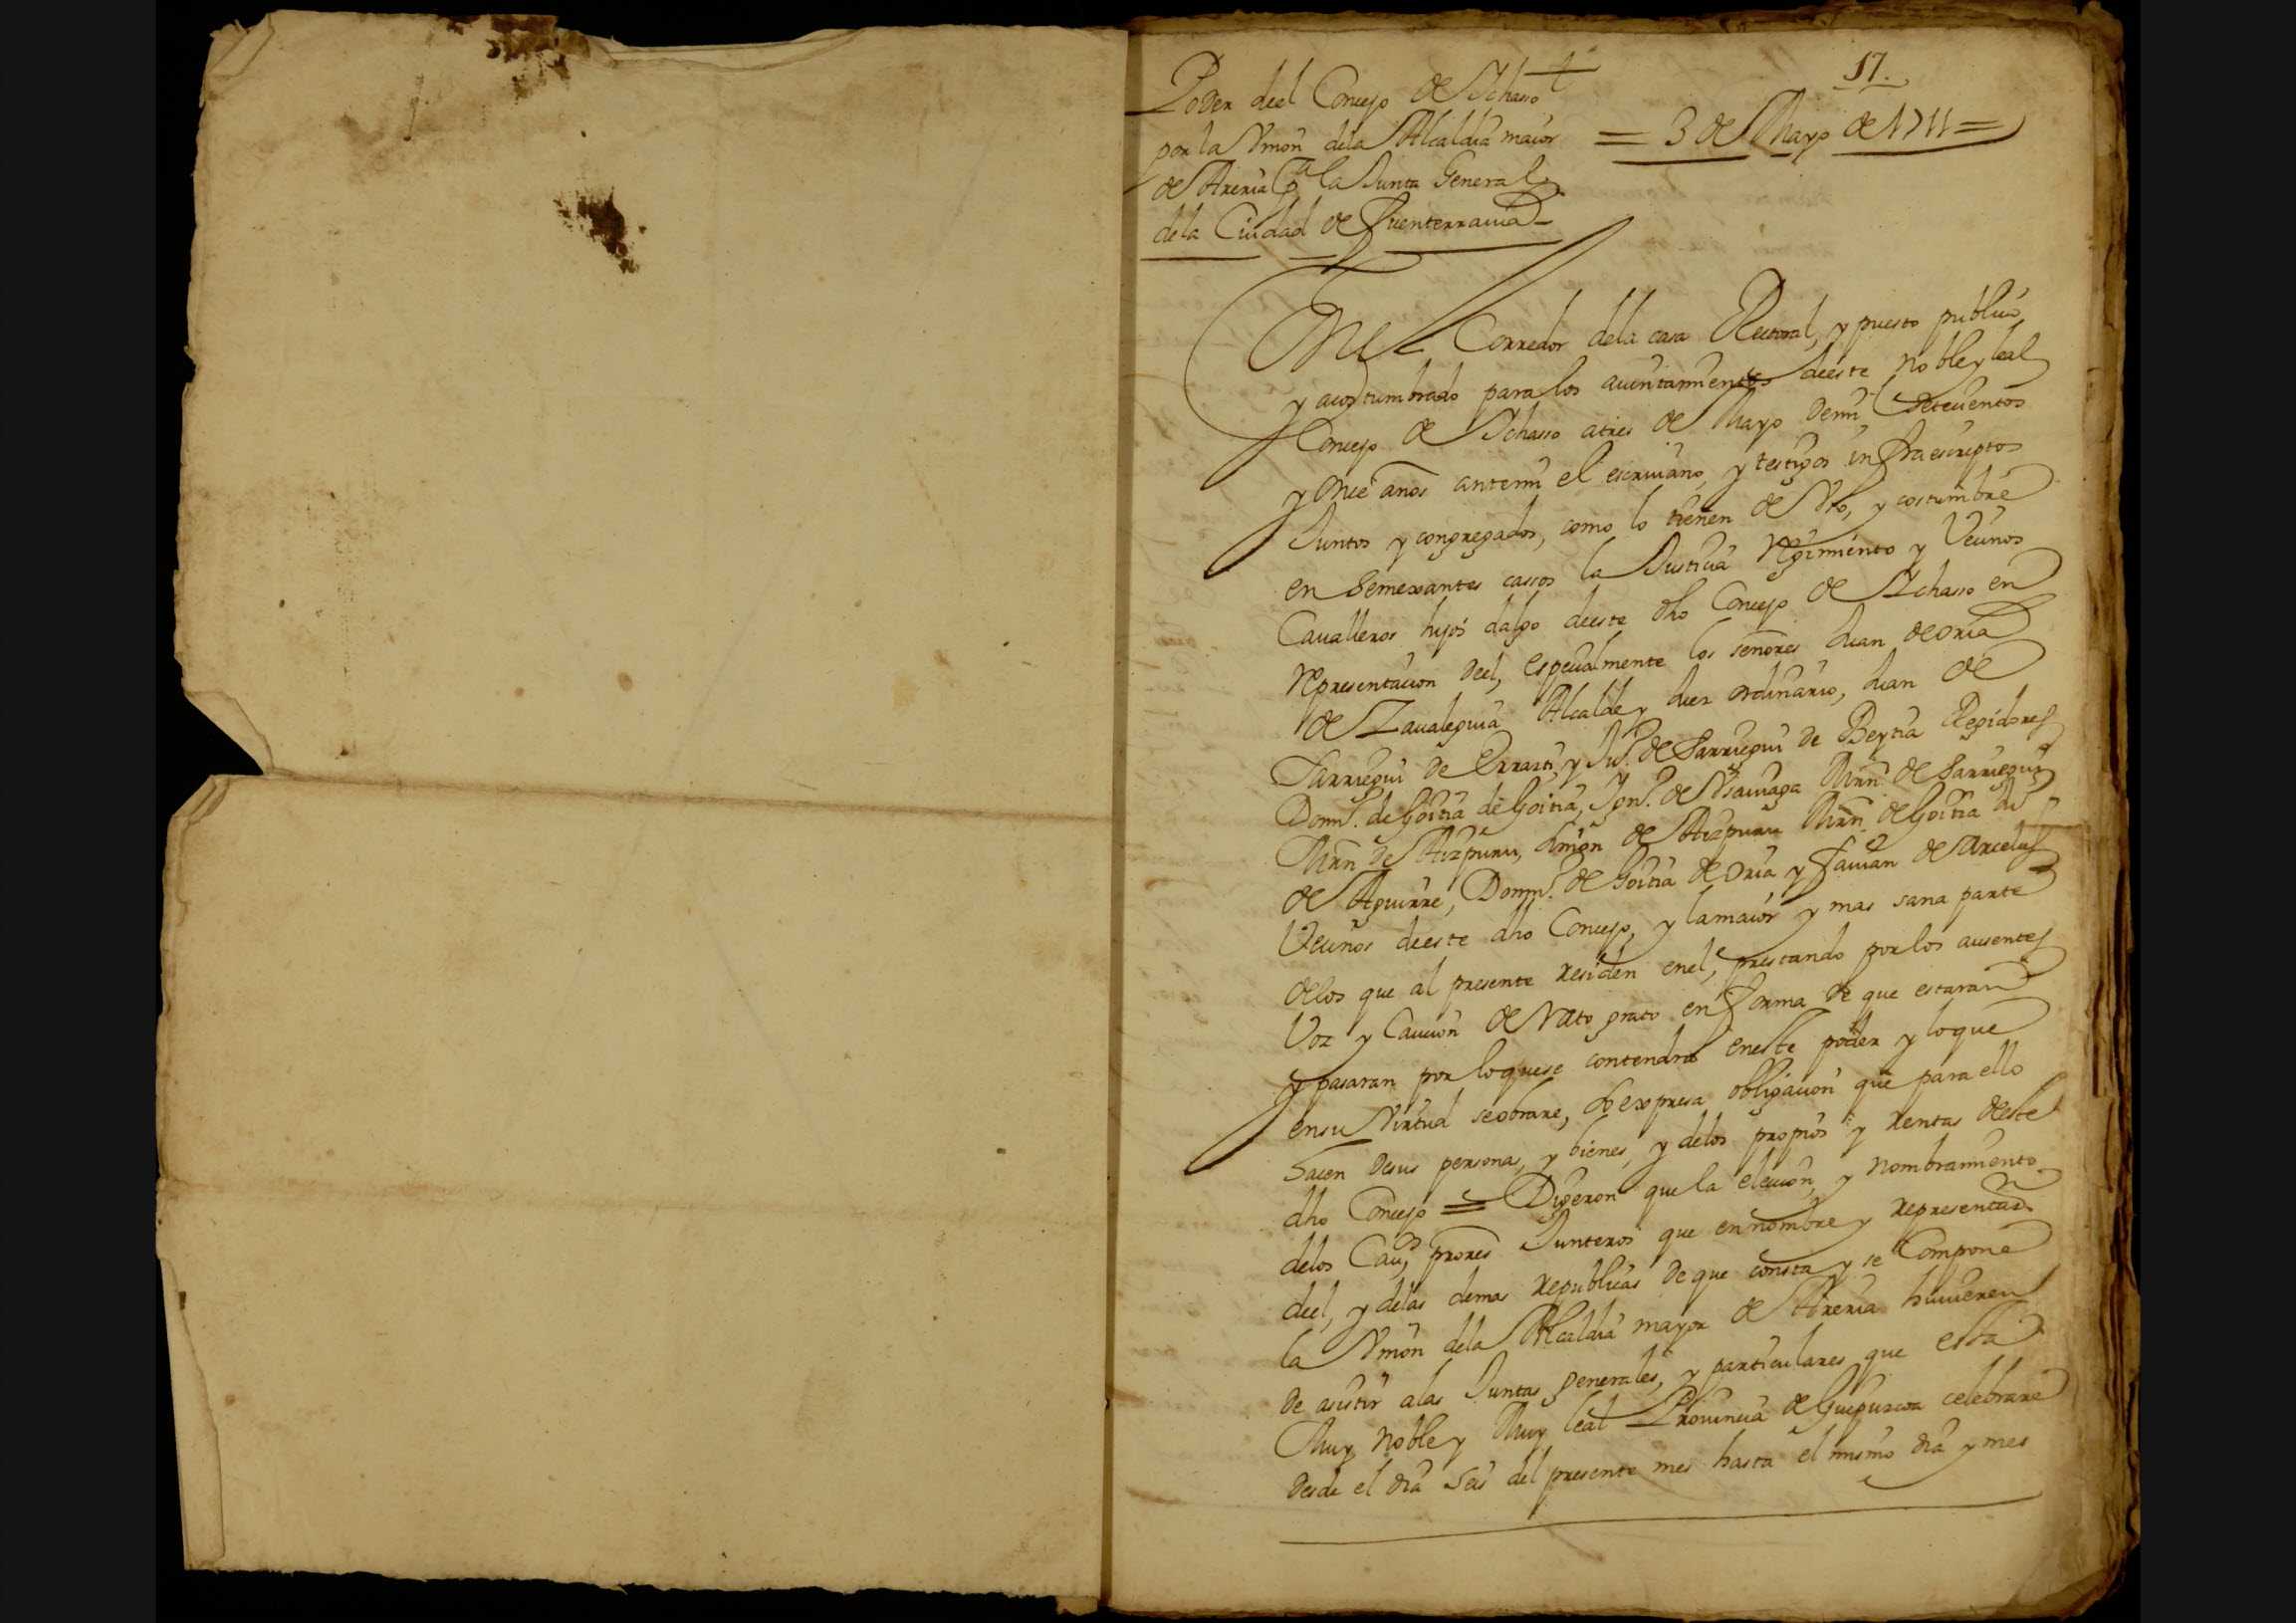 17.
Poder deel Concejo de Ychasso
por la Vnion dela Alcaldia maior
de Areria Pa la Junta General
dela Ciudad de Fuenterrauia
= 3 de Mayo de 1711 =
En el Corredor dela casa Rectoral, y puesto publico,
y acostumbrado para los aiuntamientos deeste noble y leal
Concejo de Ychasso atres de Mayo demil setecientos
y once años antemi el escriuano, y testigos infraescriptos
Juntos y congregados, como lo tienen de Vso, y costumbre
en Semexantes cassos la Justicia Regimiento y Vecinos
Caualleros hijos dalgo deeste dho Concejo de Ychasso en
Representacion deel, especialmente los señores Juan de Oria
de Zaualeguia Alcalde y Juez ordinario, Juan de
Sarriegui de Errasti, y Juo. de Sarriegui de Beytia Regidores
Domo. de Goitia de Goitia, Igno. de Mrn. de Sarriegui
Mrn de Aizpuru, Simon de Aizpuru Mrn de Goitia Juo
de Aguirre, Domo. de Goitia de Oria y Fauian de Arcelus
Vecinos deeste dho Concejo, y lamaior y mas sana parte
delos que al presente residen enel, prestando por los ausentes
Voz y Caucion de Rato grato en forma de que estaran
y pasaran por loquese contendra eneste poder y loque
ensu Virtud seobrare, so expresa obligacion que para ello
hacen desus personas, y bienes, y delos propios y rentas deeste
dho Concejo = Digeron que la eleccion, y nombramiento
delos Cauos prores Junteros que en nombre y representaon
deel, y delas demas republicas de que consta y se Compone
la Vnion dela Alcaldia mayor de Areria huuieren
de asistir alas Juntas generales, y particulares que esta
Muy noble y Muy leal Prouincia de Guipuzcoa celebrare
desde el dia seis del presente mes hasta el mismo dia y mes